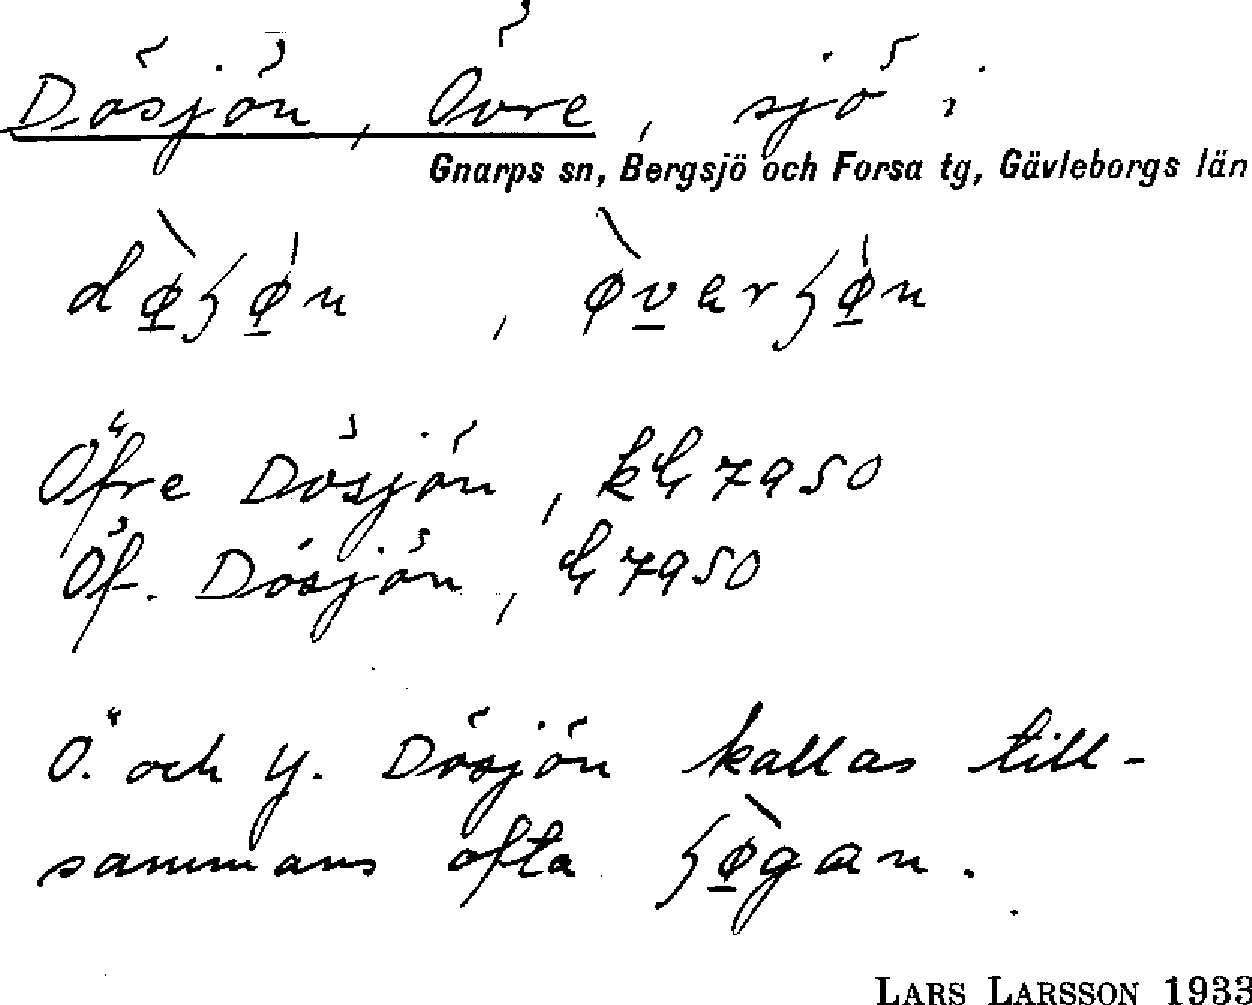 Dösjön, Övre, sjö i
Gnarps sn, Bergsjö och Forsa tg, Gävleborgs län
Öfre Dösjön, 7950
Öf. Dösjön, 7950
Ö. och Y. Dösjön kallas till-
sammans ofta
LARS LARSSON 1933